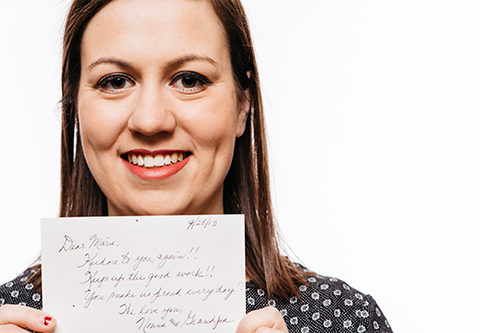 9/25/13
Dear Mara,
Kudos to you, again!!
Keep up the good work!!
You make us proud everyday!
We love you,
Nonna & Grandpa